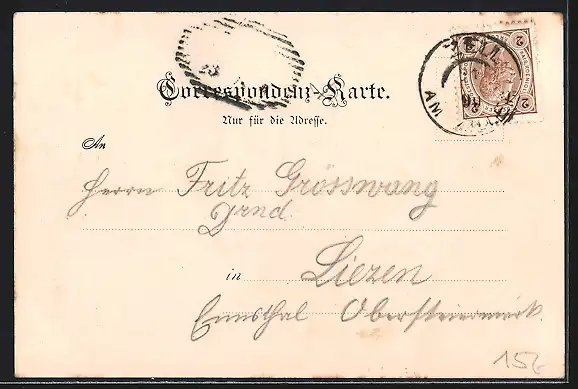 ZELL
AM
Correspondenz-Karte.
Nur für die Adresse.
An
Herrn Fritz Grösswang
in Liezen
Ennsthal Obersteiermark.
15